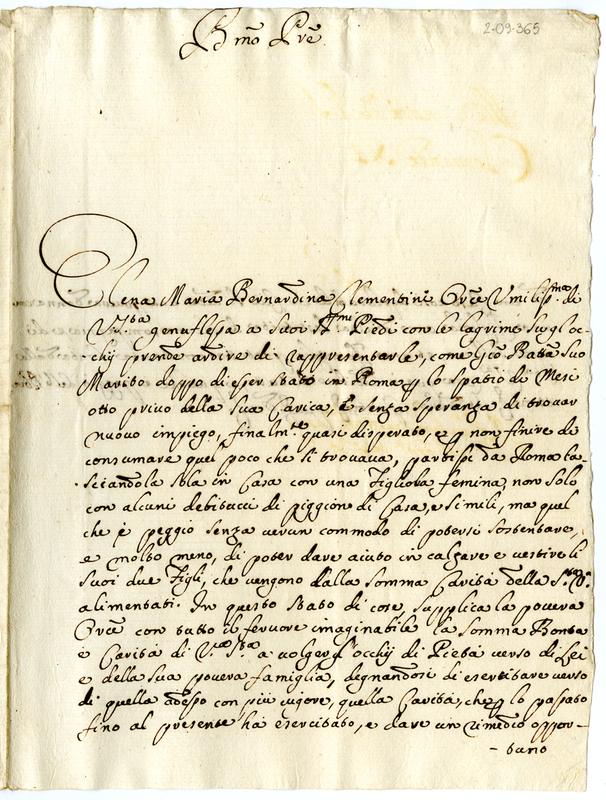 2-09-365
Bmo Pre
Elena Maria Bernardina Clementini Orce Umilissma di
V. Sta genuflessa a suoi Stmi Piedi con le lagrime su gl'oc-
chij prende ardire di rappresentarle, come Gio Batta suo
Marito doppo di esser stato in Roma p lo spatio di Mesi
otto privo della sua Carica, e senza speranza di trovar
nuovo impiego, finalmte quasi disperato, e p non finire di
consumare quel poco che si trovava, partissi da Roma la-
sciandola sola in Casa con una Figliola femina, non solo
con alcuni debitucci di piggioni di Casa, e simili, ma quel
che è peggio senza verun commodo di potersi sostentare,
e molto meno, di poter dare aiuto in calzare e vestire li
suoi due Figli, che vengono dalla somma Carità della Stà Va
alimentati. In questo stato di cose, supplica la povera
Orce con tutto il fervore imaginabile la somma Bontà
e Carità di Va Sta a volger l'occhij di Pietà verso di Lei
e della sua povera famiglia, degnandosi di esercitare verso
di quella adesso con più vigore, quella Carità, che p lo passato
fino al presente hà esercitato, e dare un rimedio oppor-
- tuno